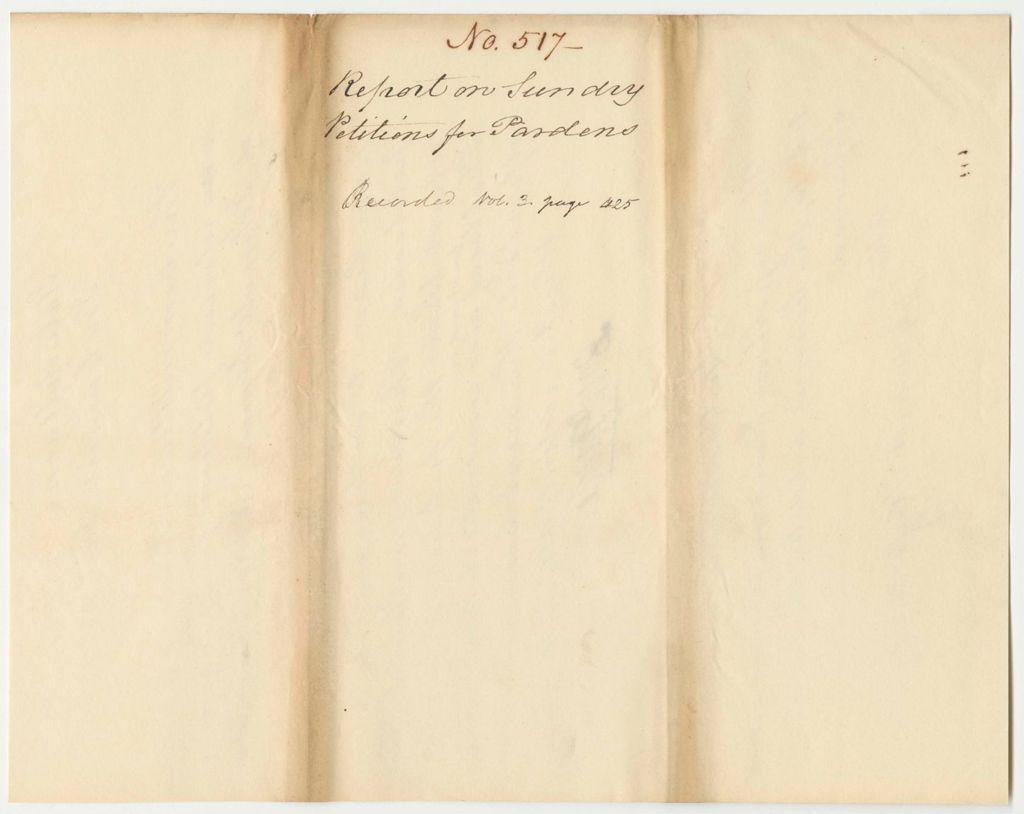 No. 517-
Report on Sundry
Petitions for Pardens
Recorded Vol. 3. page 425